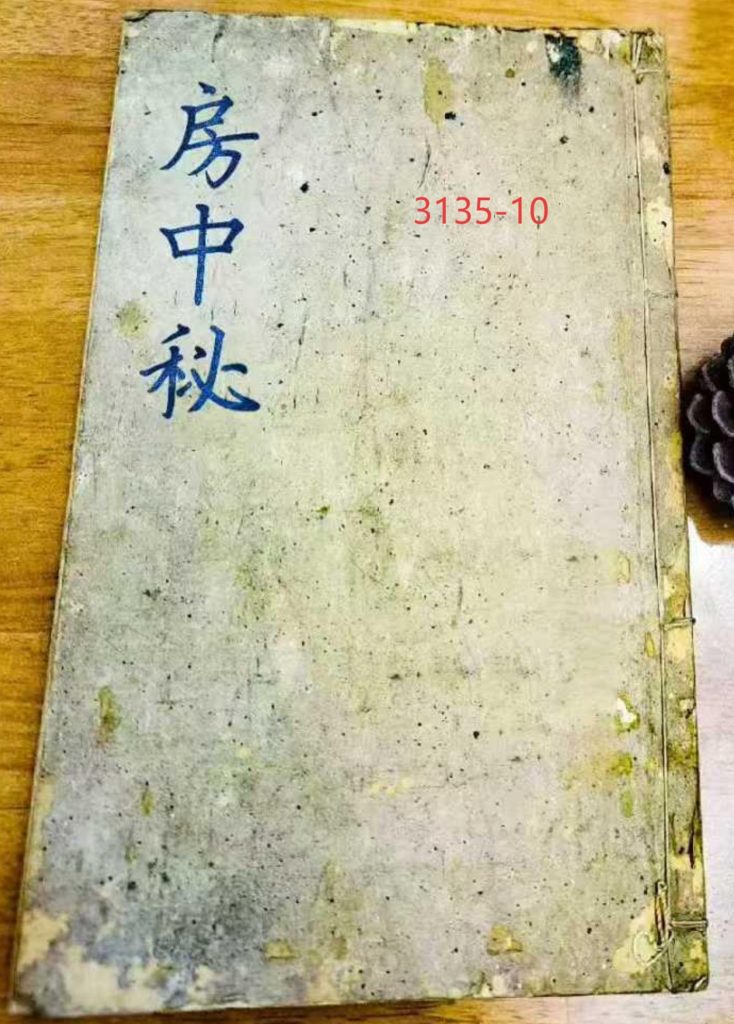 房中秘
3135-10